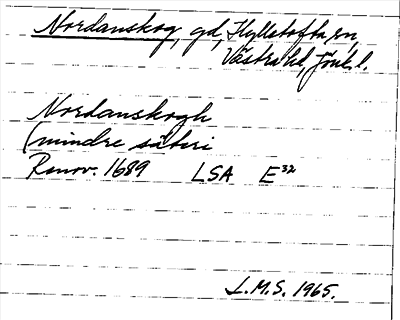 Nordanskog, gd, Hyllstofta sn,
Västra hd, Jönk. l.
Nordanskogh
(mindre säteri
Renov. 1689 LSA E³²
L.M.S. 1965.